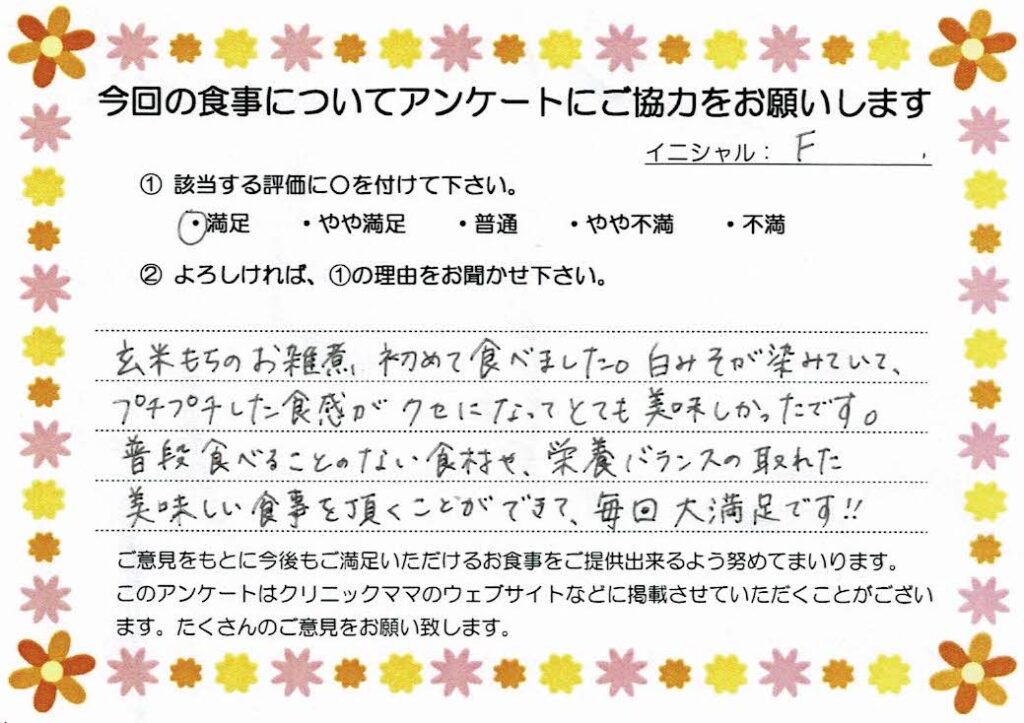 今回の食事についてアンケートにご協力をお願いします
イニシャル： F
① 該当する評価に〇を付けて下さい。
・満足 ・やや満足 ・普通 ・やや不満 ・不満
② よろしければ、①の理由をお聞かせ下さい。
玄米もちのお雑煮、初めて食べました。白みそが染みていて、
プチプチした食感がクセになってとても美味しかったです。
普段食べることのない食材や、栄養バランスの取れた
美味しい食事を頂くことができて、毎回大満足です!!
ご意見をもとに今後もご満足いただけるお食事をご提供出来るよう努めてまいります。
このアンケートはクリニックママのウェブサイトなどに掲載させていただくことがござい
ます。たくさんのご意見をお願い致します。